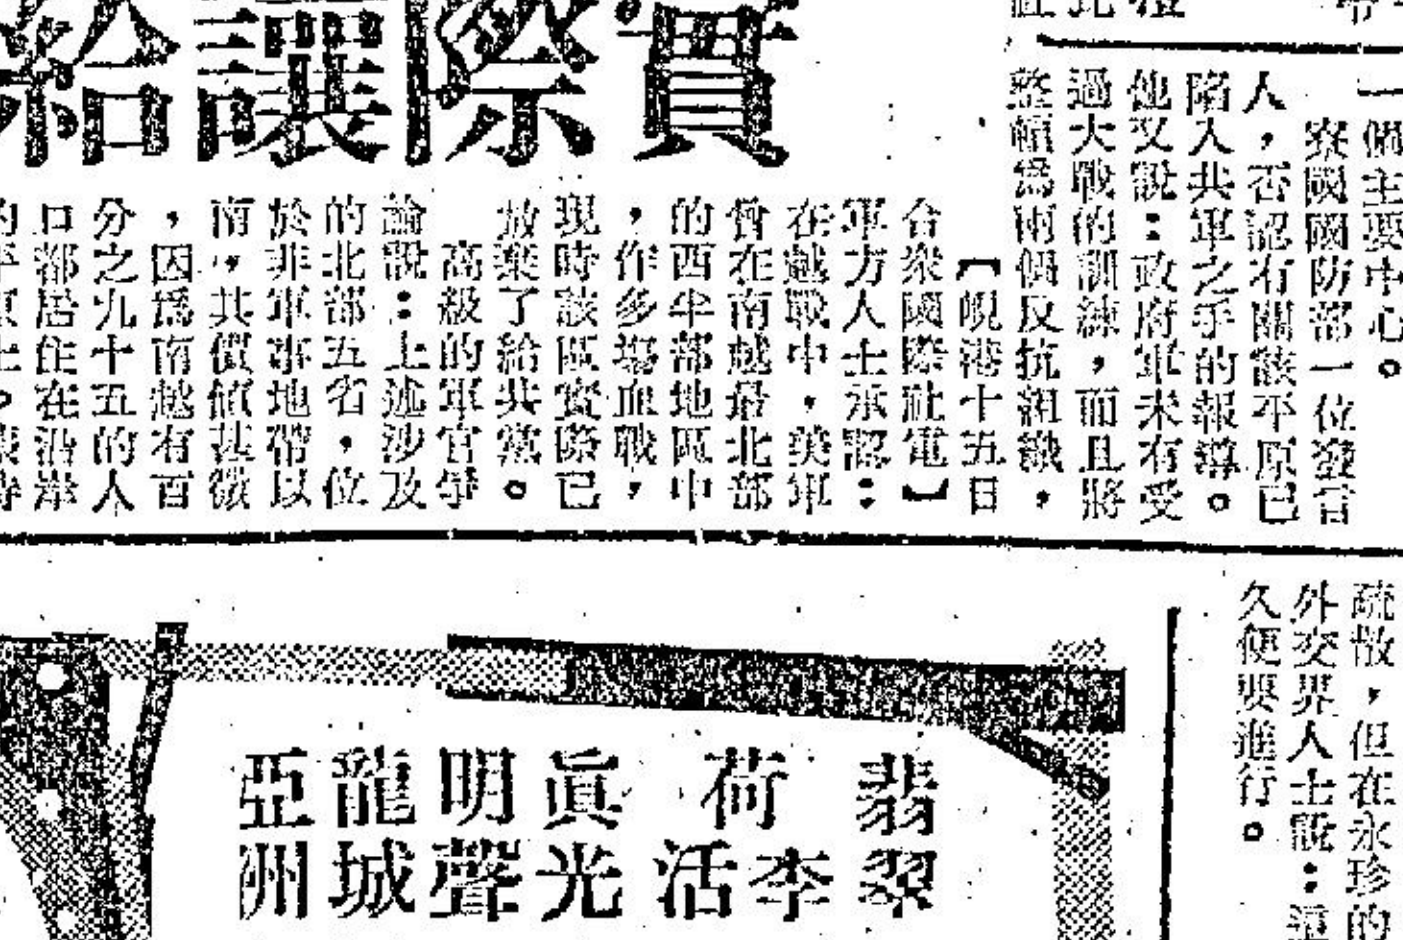 一個主要中心。
寮國國防部一位發言
人，否認有關該平原已
陷入共軍之手的報導。
他又說：政府軍未有受
過大戰的訓練，而且將
整頓爲兩個反抗組織，
實際讓給
【峴港十五日
合衆國際社電】
軍方人士承認：
在越戰中，美軍
曾在南越最北部
的西半部地區中
，作多塲血戰，
現時該區實際已
放棄了給共黨。
高級的軍官學
論說：上述涉及
的北部五省，位
於非軍事地帶以
南，共價値甚微
，因爲南越有百
分之九十五的人
口都居住在沿岸
疏散，但在永珍的
外交界人士說：這
久便要進行。
翡翠
荷李活
眞光
明聲
龍城
亞洲